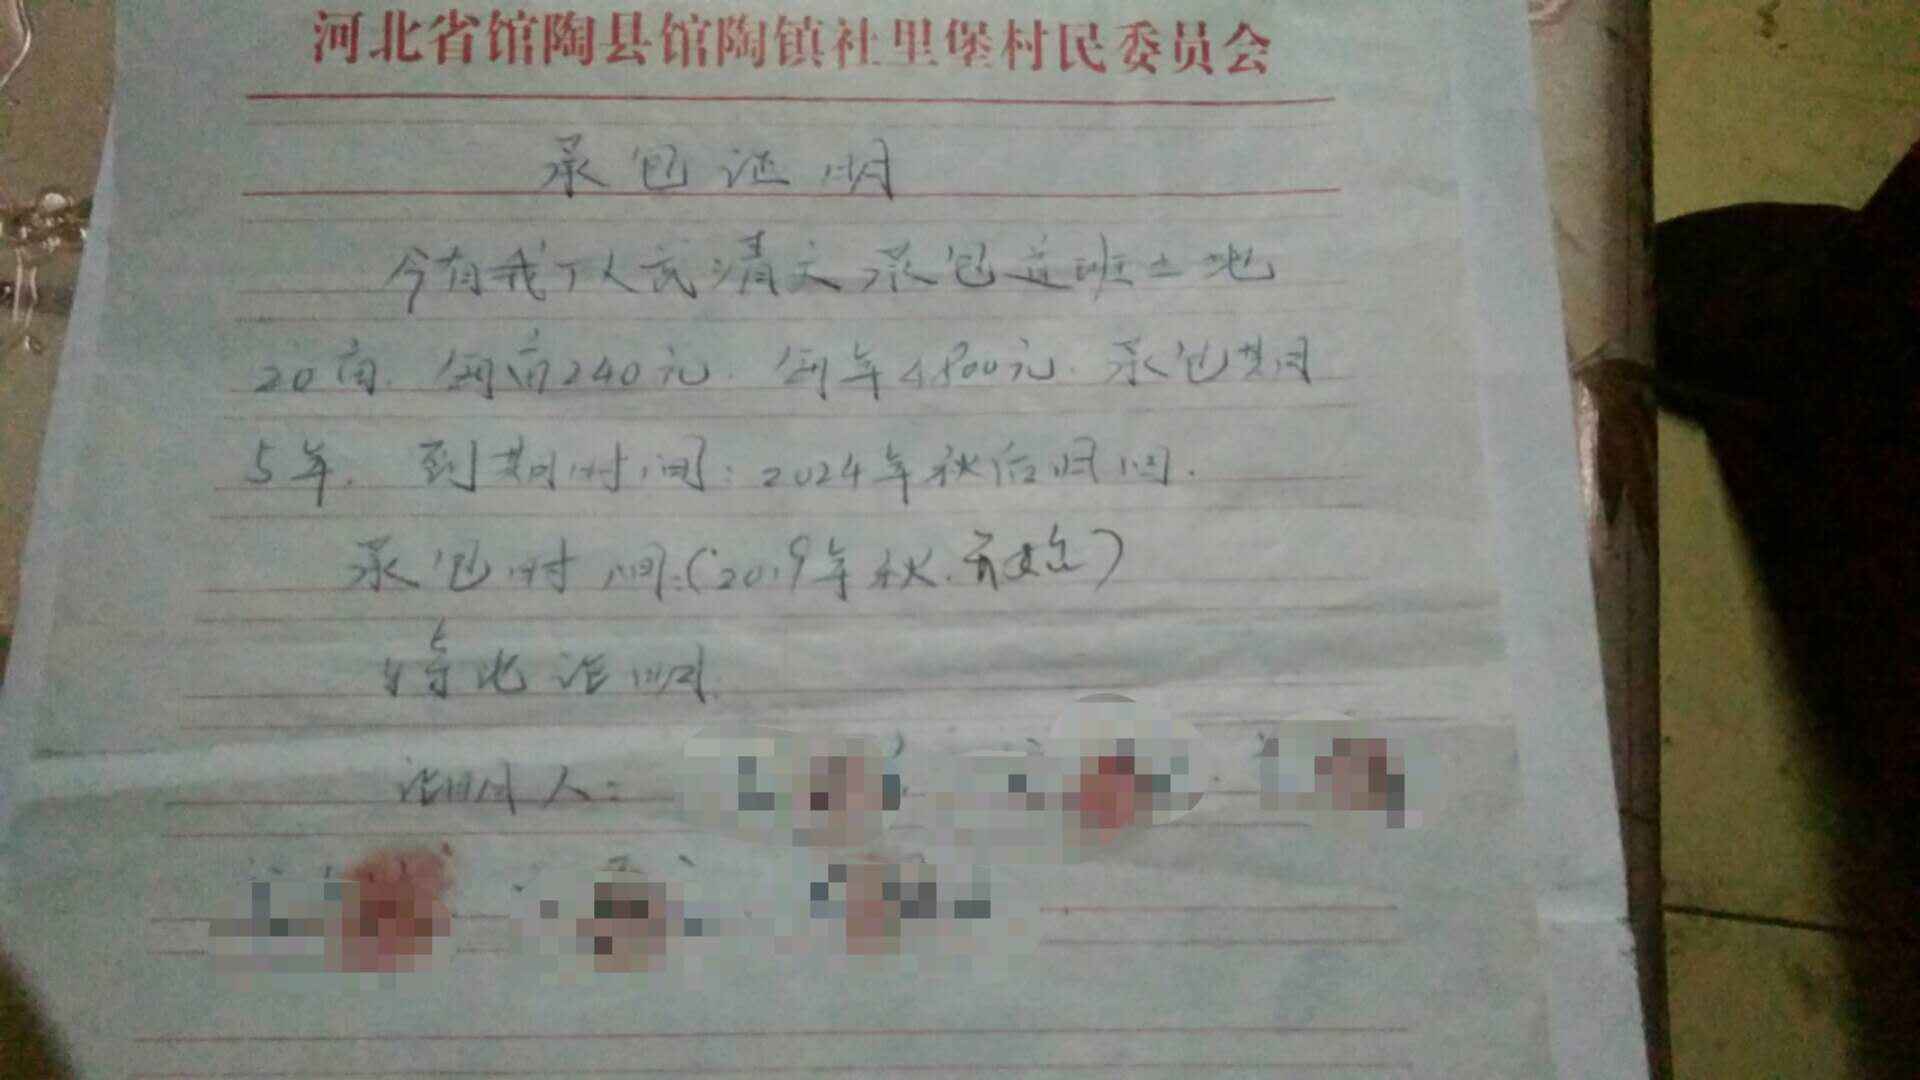 河北省馆陶县馆陶镇社里堡村民委员会
承包证明
今有我丁人武清文承包这班土地
20亩.每亩240元.每年4800元.承包期
5年.到期时间:2024年秋后归回.
承包时间:(2019年秋.有效)
特此证明
证明人: